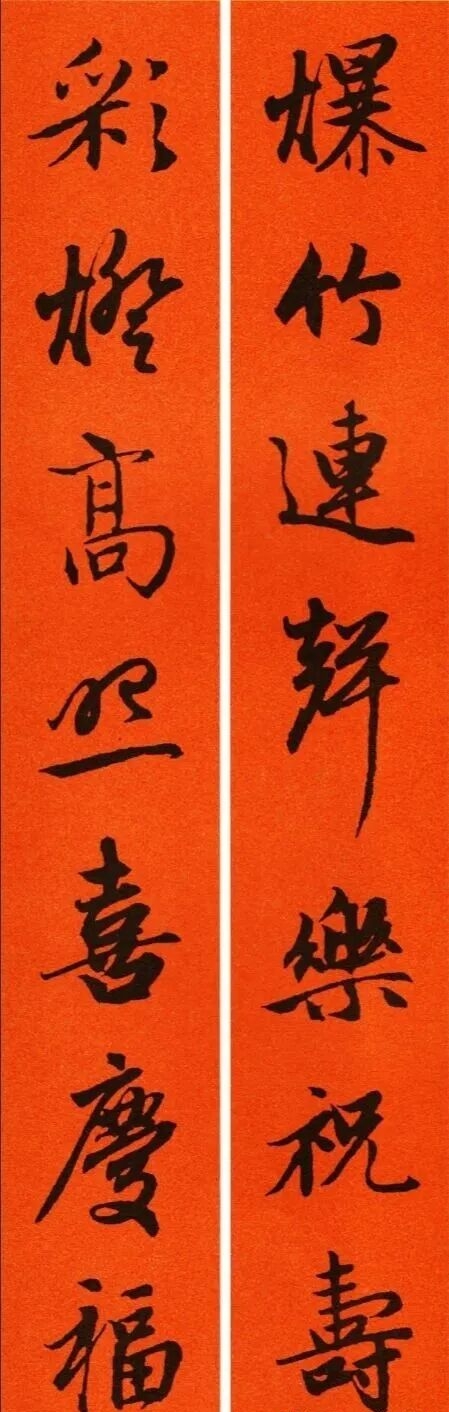 爆竹連聲樂祝壽
彩燈高照喜慶福